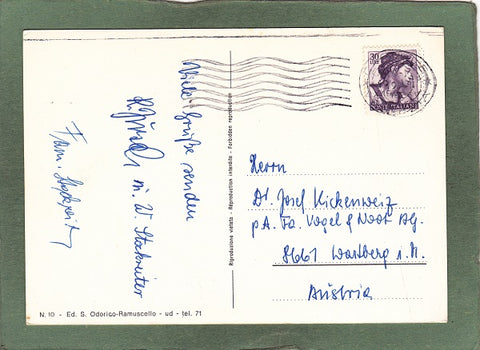 Viele Grüße senden
m. W
Fam.
Riproduzione vietata - Réproduction interdite - Forbidden reproduction
30
POSTE ITALIANE
Herrn
Dr. Josef Kickenweiz
p A. Fa. Vogel & Noot AG.
8661 Wartberg i. M.
Austria
N. 10 - Ed. S. Odorico-Ramuscello - ud - tel. 71